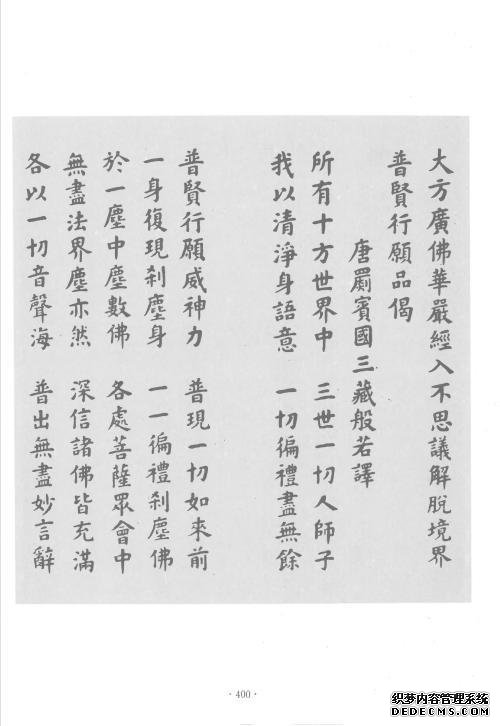 大方廣佛華嚴經入不思議解脫境界
普賢行願品偈
唐罽賓國三藏般若譯
所有十方世界中 三世一切人師子
我以清淨身語意 一切徧禮盡無餘
普賢行願威神力 普現一切如來前
一身復現剎塵身 一一徧禮剎塵佛
於一塵中塵數佛 各處菩薩眾會中
無盡法界塵亦然 深信諸佛皆充滿
各以一切音聲海 普出無盡妙言辭
·400·
织梦内容管理系统
DEDECMS.COM